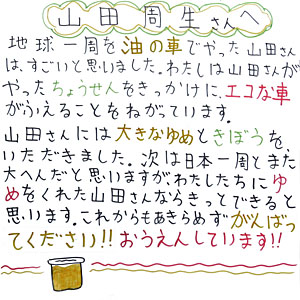 山田周生さんへ
地球一周を油の車でやった山田さん
は、すごいと思いました。わたしは山田さんが
やったちょうせんをきっかけに、エコな車
がふえることをねがっています。
山田さんには大きなゆめときぼうを、
いただきました。次は日本一周とまた、
大へんだと思いますがわたしたちにゆ
めをくれた山田さんならきっとできると
思います。これからもあきらめずがんばっ
てください!!おうえんしています!!